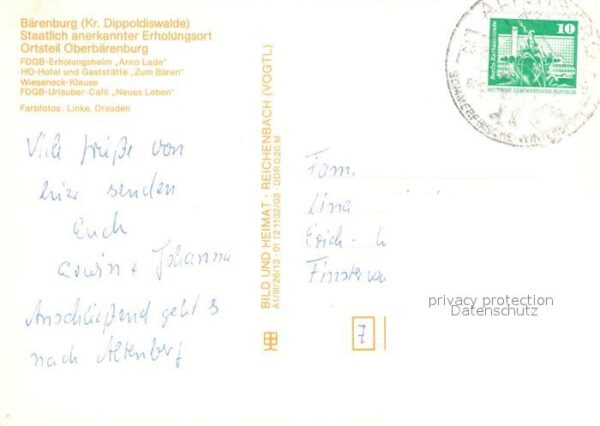 Bärenburg (Kr. Dippoldiswalde)
Staatlich anerkannter Erholungsort
Ortsteil Oberbärenburg
FDGB-Erholungsheim „Arno Lade“
HO-Hotel und Gaststätte „Zum Bären“
Wieseneck-Klause
FDGB-Urlauber-Café „Neues Leben“
Farbfotos: Linke, Dresden
Viele Grüße von
hier senden
Euch
Erwin + Johanna
Anschließend geht's
nach Altenberg
BILD UND HEIMAT · REICHENBACH (VOGTL)
A1/III/26/13 · 01 12 1132/03 · DDR 0,20 M
10
DEUTSCHE DEMOKRATISCHE REPUBLIK
SOMMERFRISCHE - WINTERSPORT
Fam.
Lina
Erich-
Finsterwa
7
privacy protection
Datenschutz